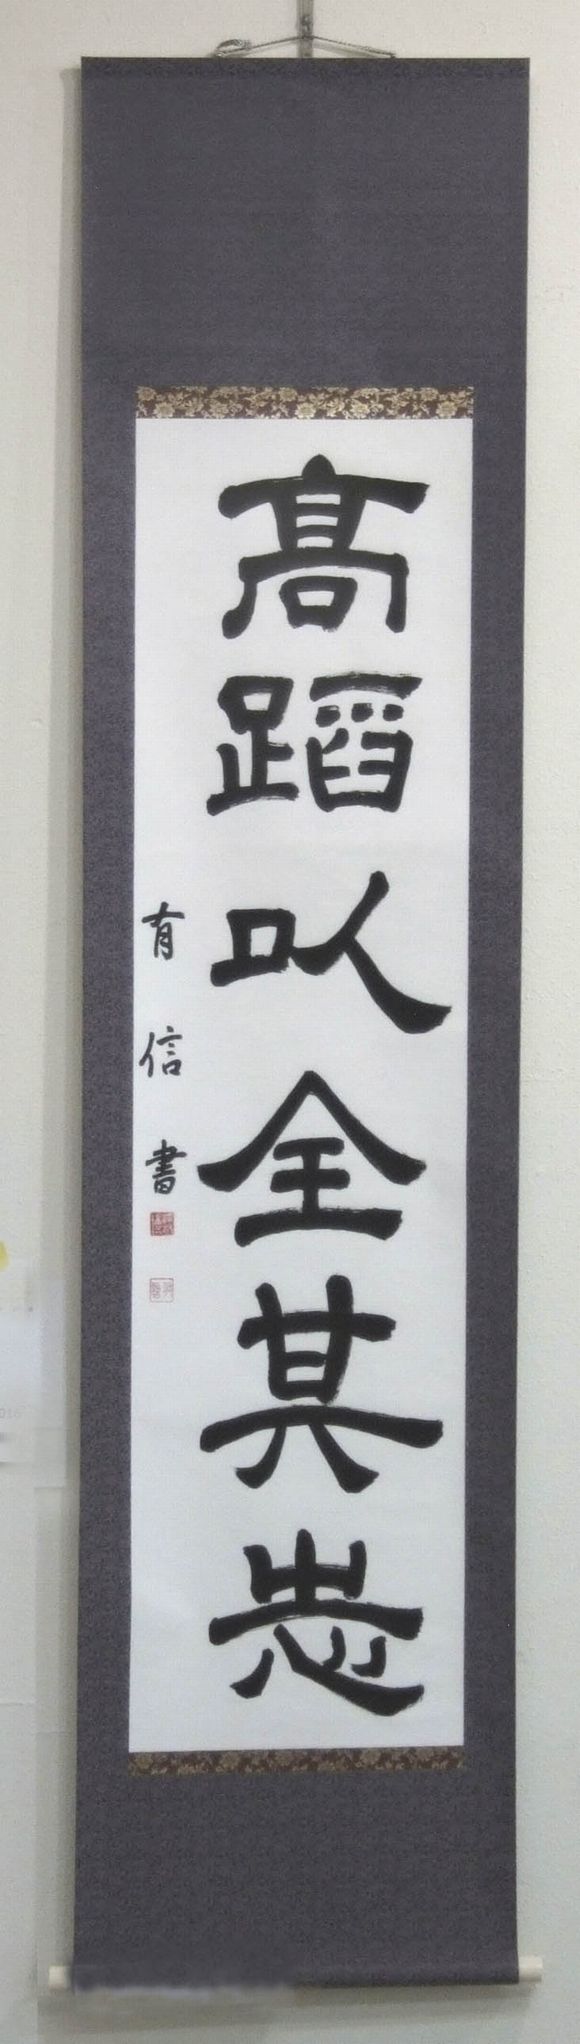 高蹈以全其志
有信書